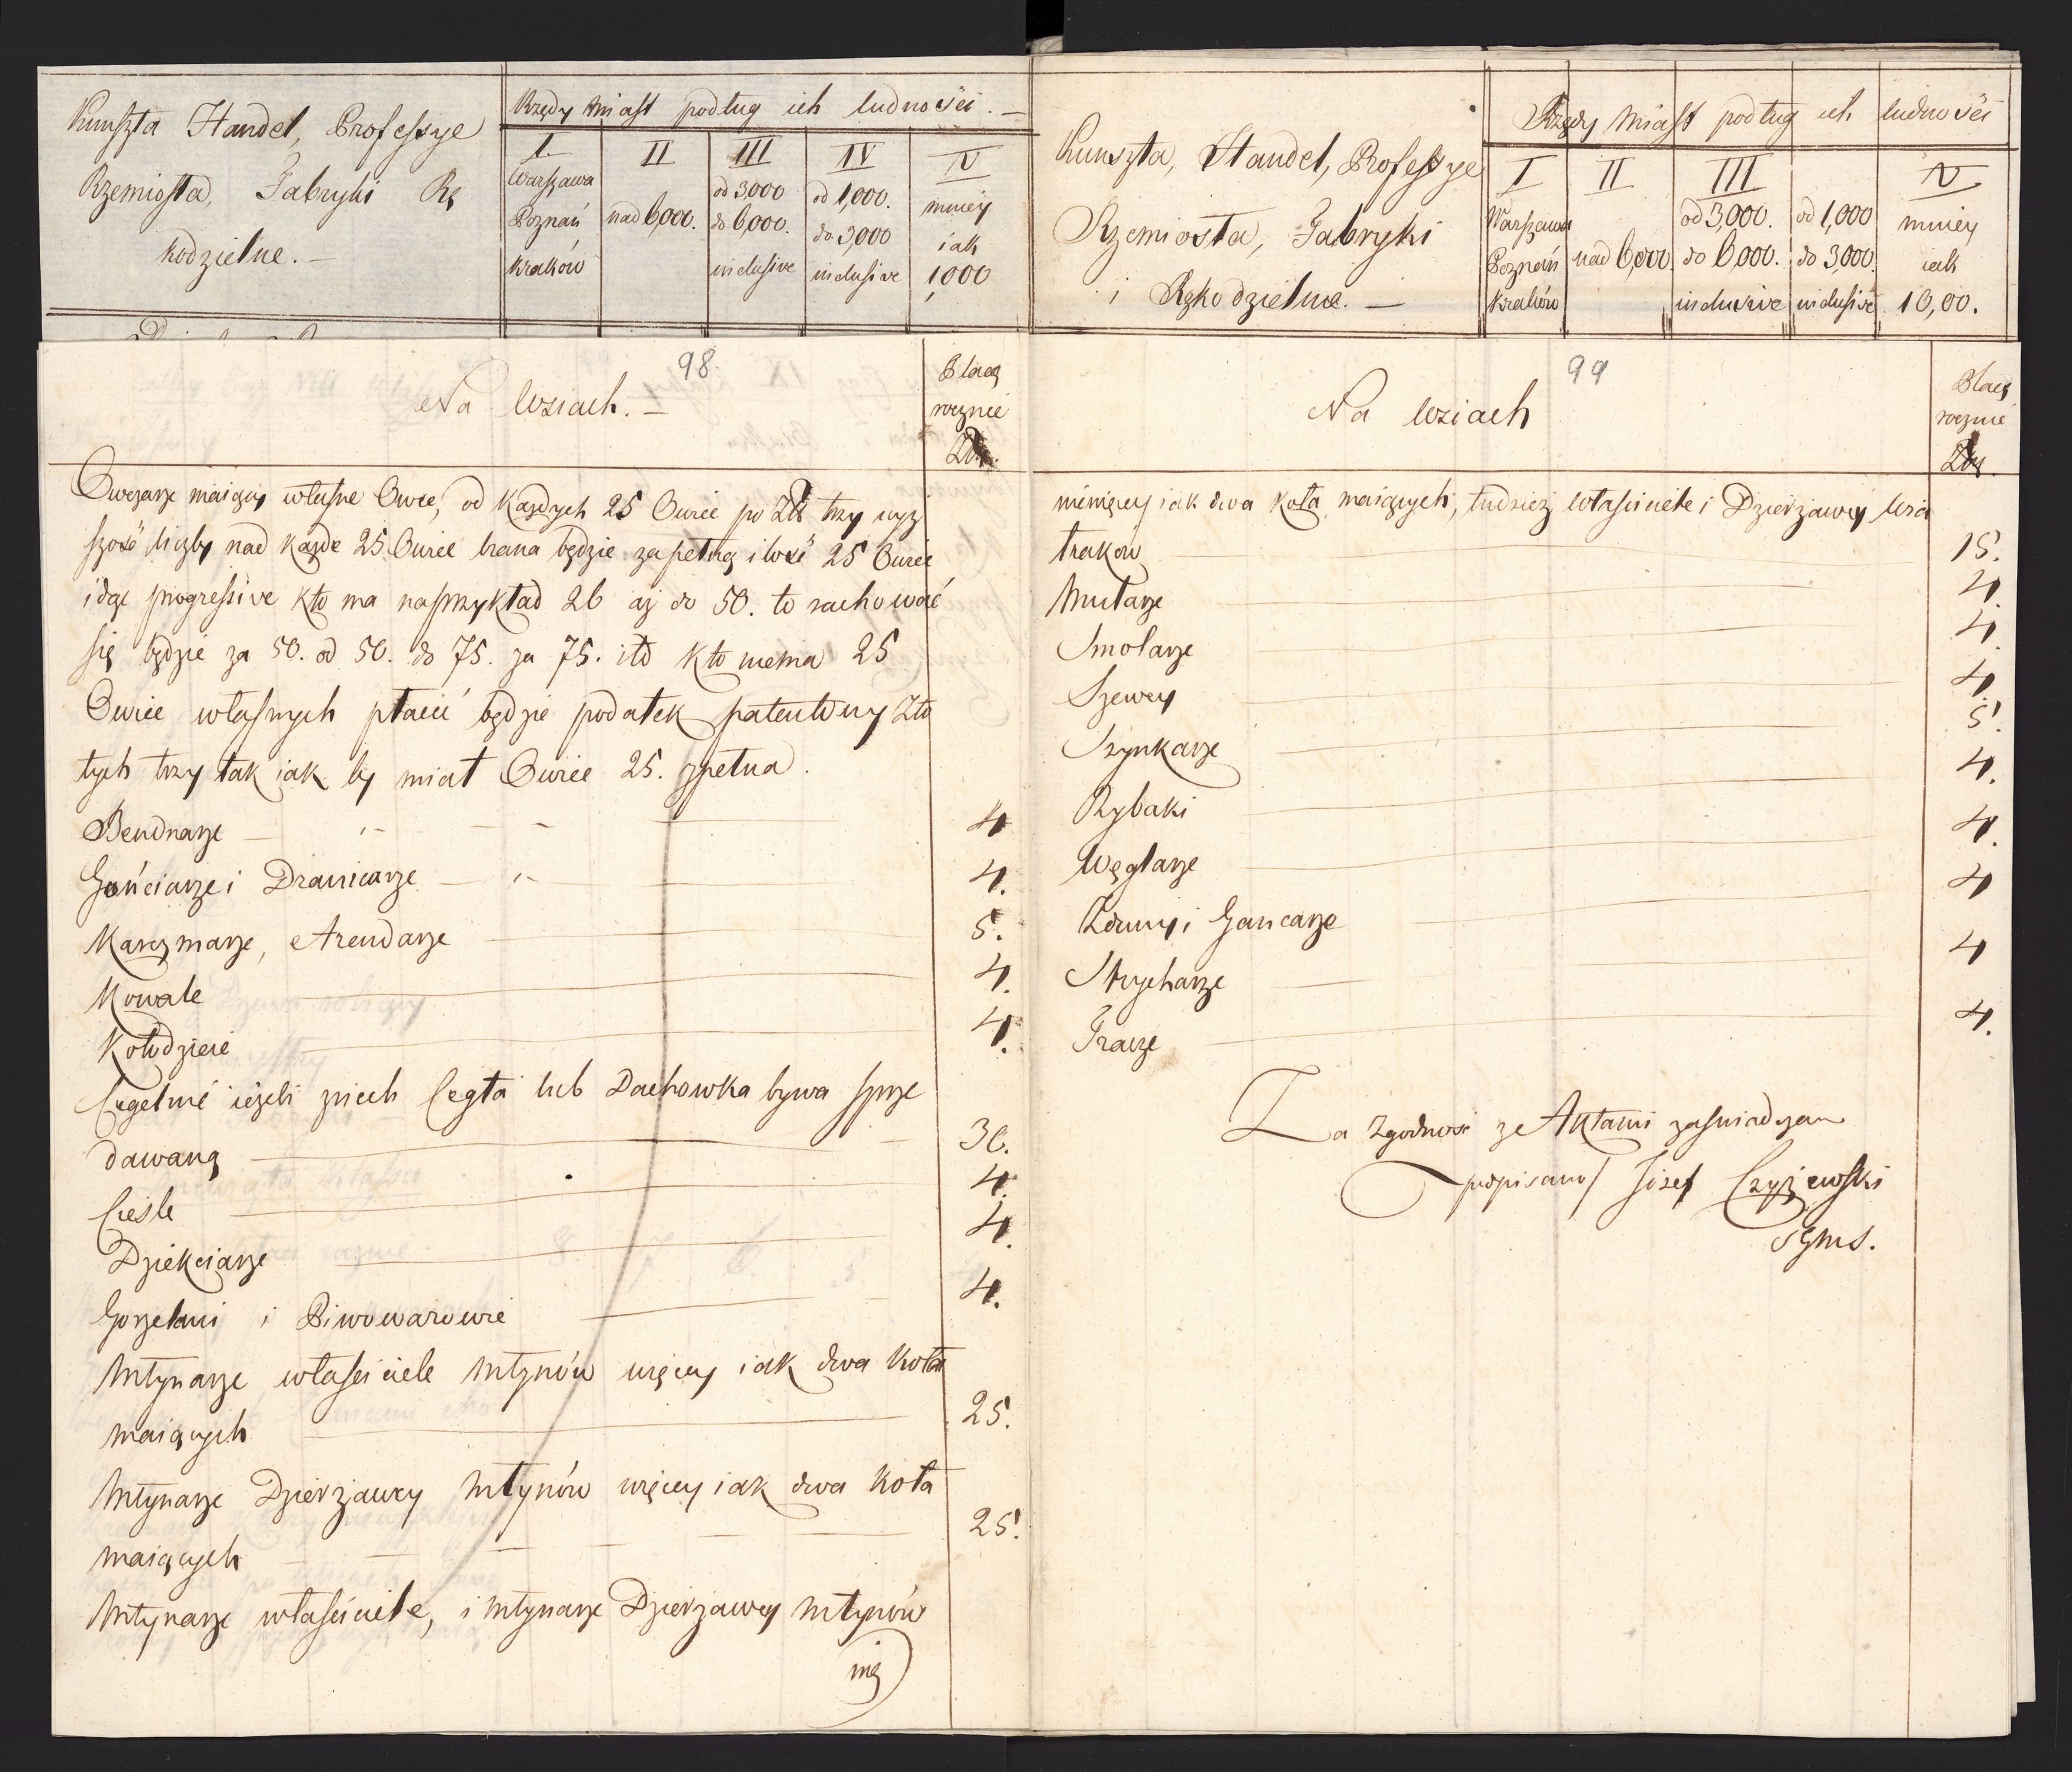 Kunszta Handel, Professye
Rzemiosła, Fabryki Rę
kodzielne. —
Rzędy Miast podług ich ludności. —
I. II III IV V
Warszawa Poznań Kraków
nad 6,000.
od 3,000 do 6,000. inclusive
od 1,000. do 3,000 inclusive
mniey iak 1,000
98
Na Wsiach. —
Płacą
rocznie
Złp.
Owczarze maiący własne Owce, od każdych 25 Owiec po Zł trzy wyż
szość liczby nad każde 25 Owiec brana będzie za pełną ilość 25 Owiec
idąc progressive kto ma naprzykład 26 aż do 50. to rachować
się będzie za 50. od 50. do 75. za 75. itd kto niema 25
Owiec własnych płacić będzie podatek patentowy Zło
tych trzy tak iak by miał Owiec 25. zpełna.
Bendnarze — 4
Gońciarze i Dranicarze — 4.
Karczmarze, Arendarze 5.
Kowale 4.
Kołodzieie 4.
Cegelnie ieżeli znich Cegła lub Dachowka bywa sprze
dawaną 30.
Cieśle 4.
Dziekciarze 4.
Gorzelani i Piwowarowie 4.
Młynarze właściciele Młynów więcey iak dwa koła
maiących 25.
Młynarze Dzierżawcy Młynów więcey iak dwa koła
maiących 25.
Młynarze właściciele, i Młynarze Dzierżawcy Młynów
nie
Kunszta, Handel, Professye
Rzemiosła, Fabryki
i Rękodzielne. —
Rzędy Miast podług ich ludności
I II III V
Warszawa Poznań Kraków
nad 6,000.
od 3,000. do 6,000. inclusive
od 1,000 do 3,000. inclusive
mniey iak 10,00.
99
Na Wsiach
Płacą
rocznie
Złp.
niewięcey iak dwa koła maiących, tudzież Właściciele i Dzierżawcy Wia
traków 15.
Mularze 4.
Smolarze 4.
Szewcy 4.
Szynkarze 5.
Rybaki 4.
Węglarze 4.
Zduny i Garncarze 4
Strycharze 4
Tracze 4.
Za Zgodność ze Aktami zaświadczam
podpisano/ Józef Czyżewski